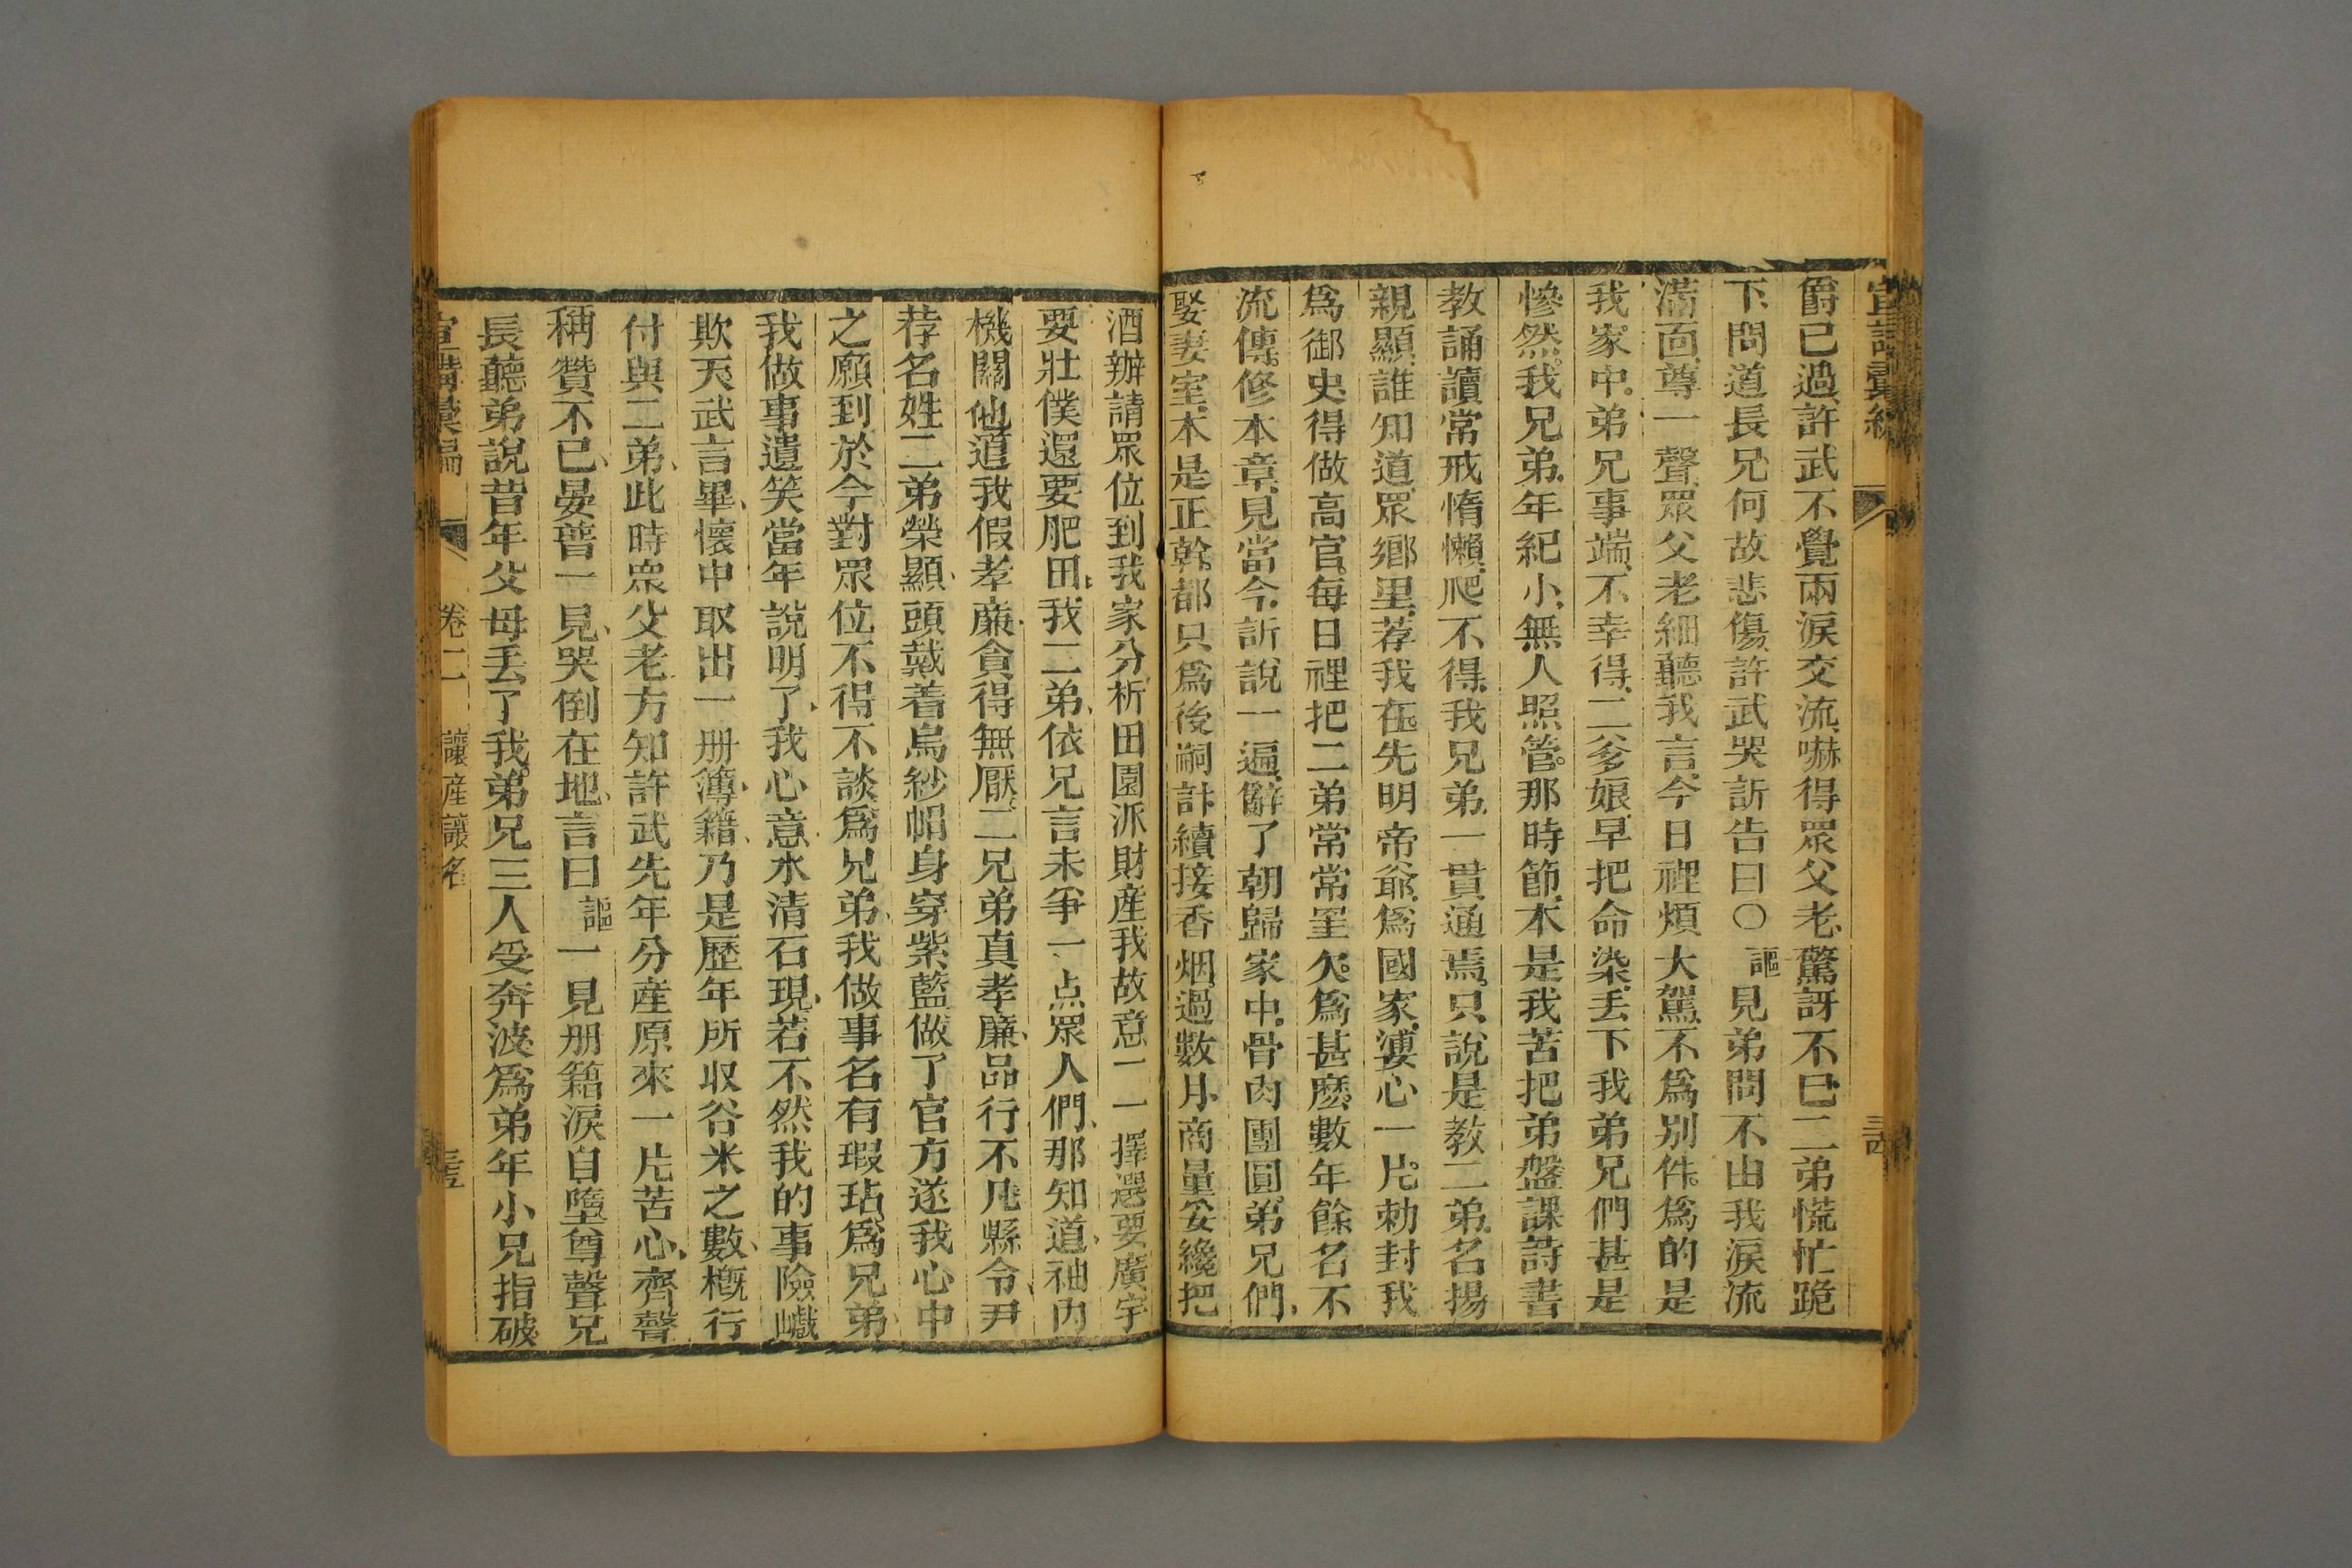 宣講彙編
三十四
爵已過、許武不覺兩淚交流、嚇得眾父老、驚訝不已、二弟慌忙跪
下、問道長兄何故悲傷、許武哭訴告曰〇謳見弟問不由我淚流
滿面、尊一聲、眾父老細聽我言、今日裡煩大駕、不為別件、為的是
我家中、弟兄事端、不幸得、二爹娘、早把命染、丟下我弟兄們甚是
慘然、我兄弟、年紀小、無人照管、那時節、本是我苦把弟盤課詩書
教誦讀常戒惰懶、爬不得、我兄弟、一貫通焉、只說是教二弟、名揚
親顯、誰知道、眾鄉里、荐我在先明帝爺、為國家、淒心一片、勅封我
為御史得做高官、每日裡把二弟常常罣欠、為甚麼、數年餘、名不
流傳、修本章、見當今、訴說一遍、辭了朝歸家中、骨肉團圓、弟兄們、
娶妻室、本是正幹、都只為後嗣計續接香烟、過數月、商量妥、纔把
酒辦請眾位到我家分析田園派財產我故意一一擇選要廣宇
要壯僕還要肥田、我二弟、依兄言未爭一点眾人們、那知道、袖內
機關他道我假孝廉貪得無厭、二兄弟真孝廉、品行不凡縣令尹
荐名姓二弟榮顯、頭戴着烏紗帽身穿紫藍做了官方遂我心中
之願到於今對眾位不得不談為兄弟、我做事名有瑕玷、為兄弟、
我做事遺笑當年說明了、我心意、水清石現、若不然我的事險巇
欺天武言畢、懷中取出一册簿籍、乃是歷年所収谷米之數、槪行
付與二弟、此時眾父老方知許武先年分產原來一片苦心、齊聲
稱贊不已、晏普一見、哭倒在地、言曰謳一見册籍淚自墮尊聲兄
長聽弟說昔年父母丟了我、弟兄三人受奔波為弟年小兄指破
宣講彙編
卷二
讓產讓名
三十五